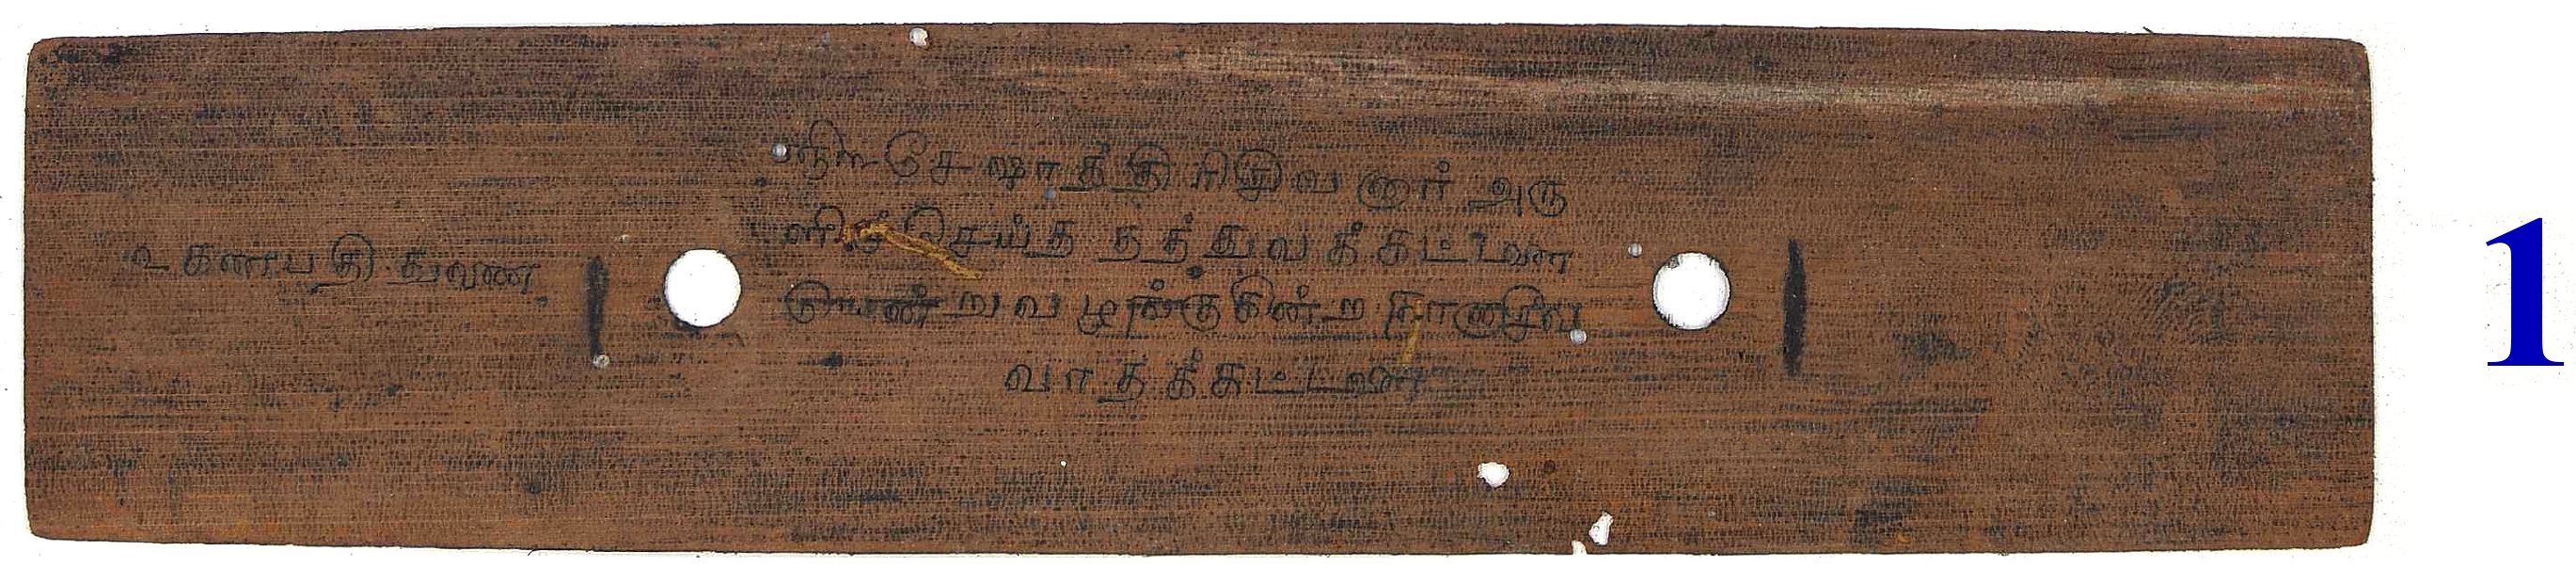 உ கணபதி துணை
ஸ்ரீ சேஷாத்திரிசிவனார் அரு
ளிச்செய்த தத்துவக்கட்டளை
யென்று வழங்குகின்ற நானாசீவ
வாதக்கட்டளை
1